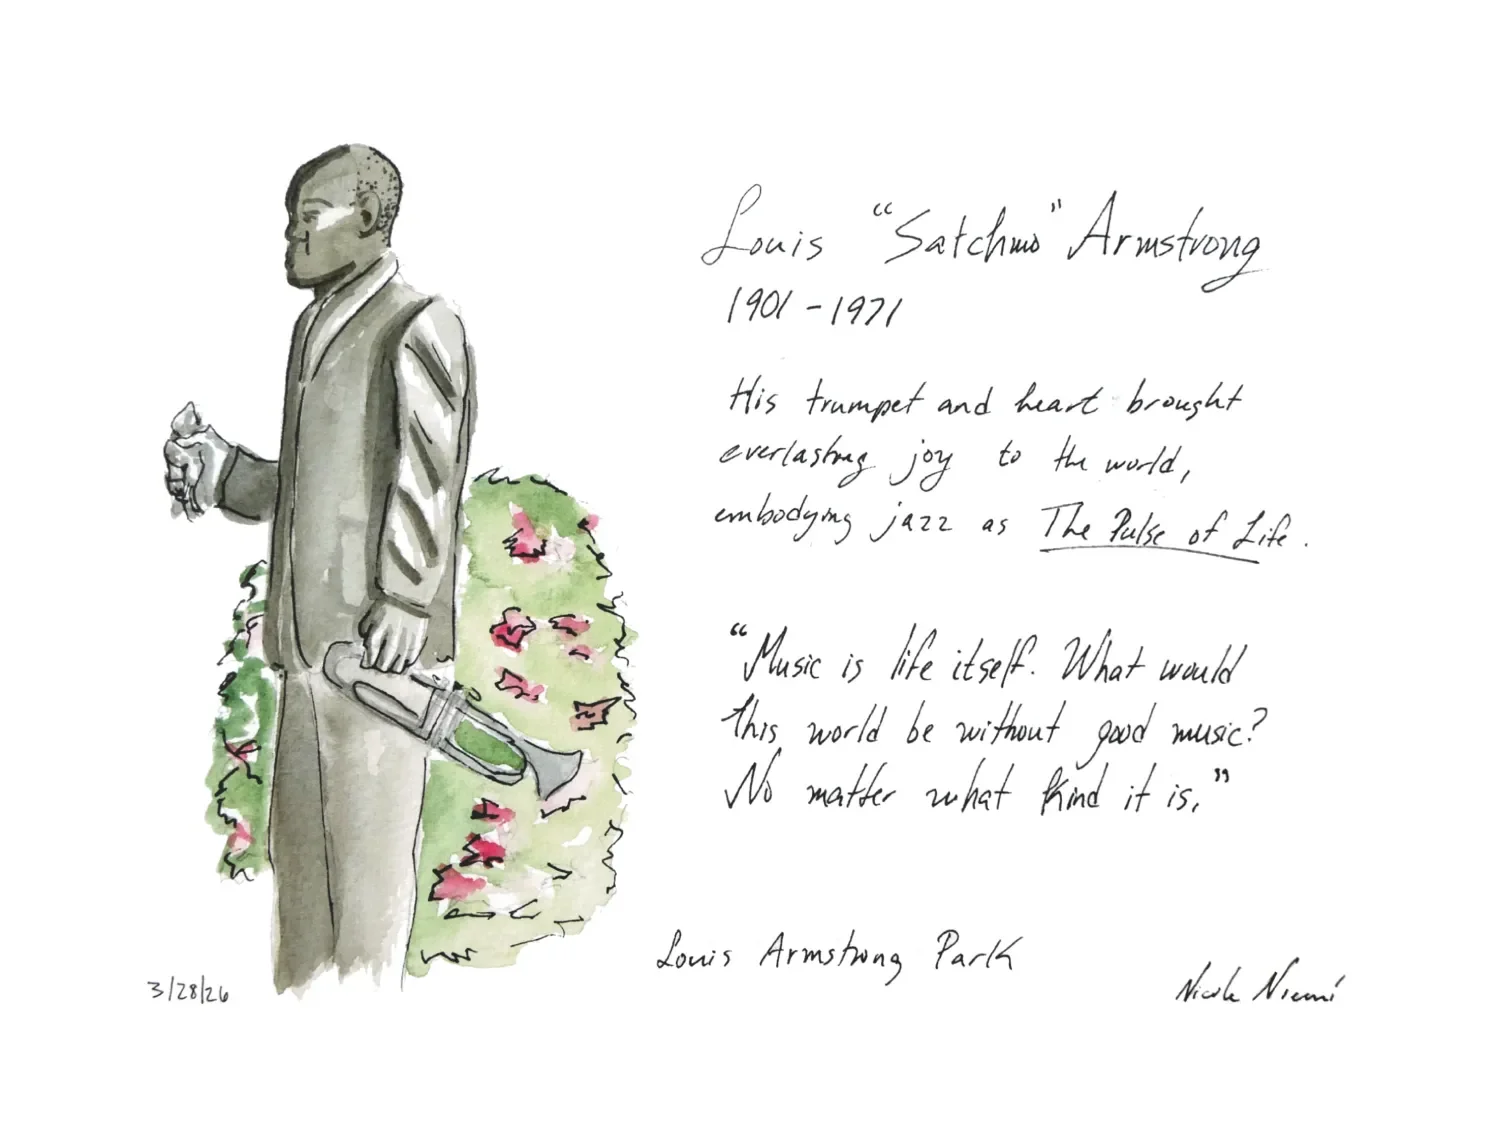 Louis "Satchmo" Armstrong
1901 - 1971
His trumpet and heart brought
everlasting joy to the world,
embodying jazz as The Pulse of Life.
"Music is life itself. What would
this world be without good music?
No matter what kind it is."
Louis Armstrong Park
3/28/26
Nicole Niemi